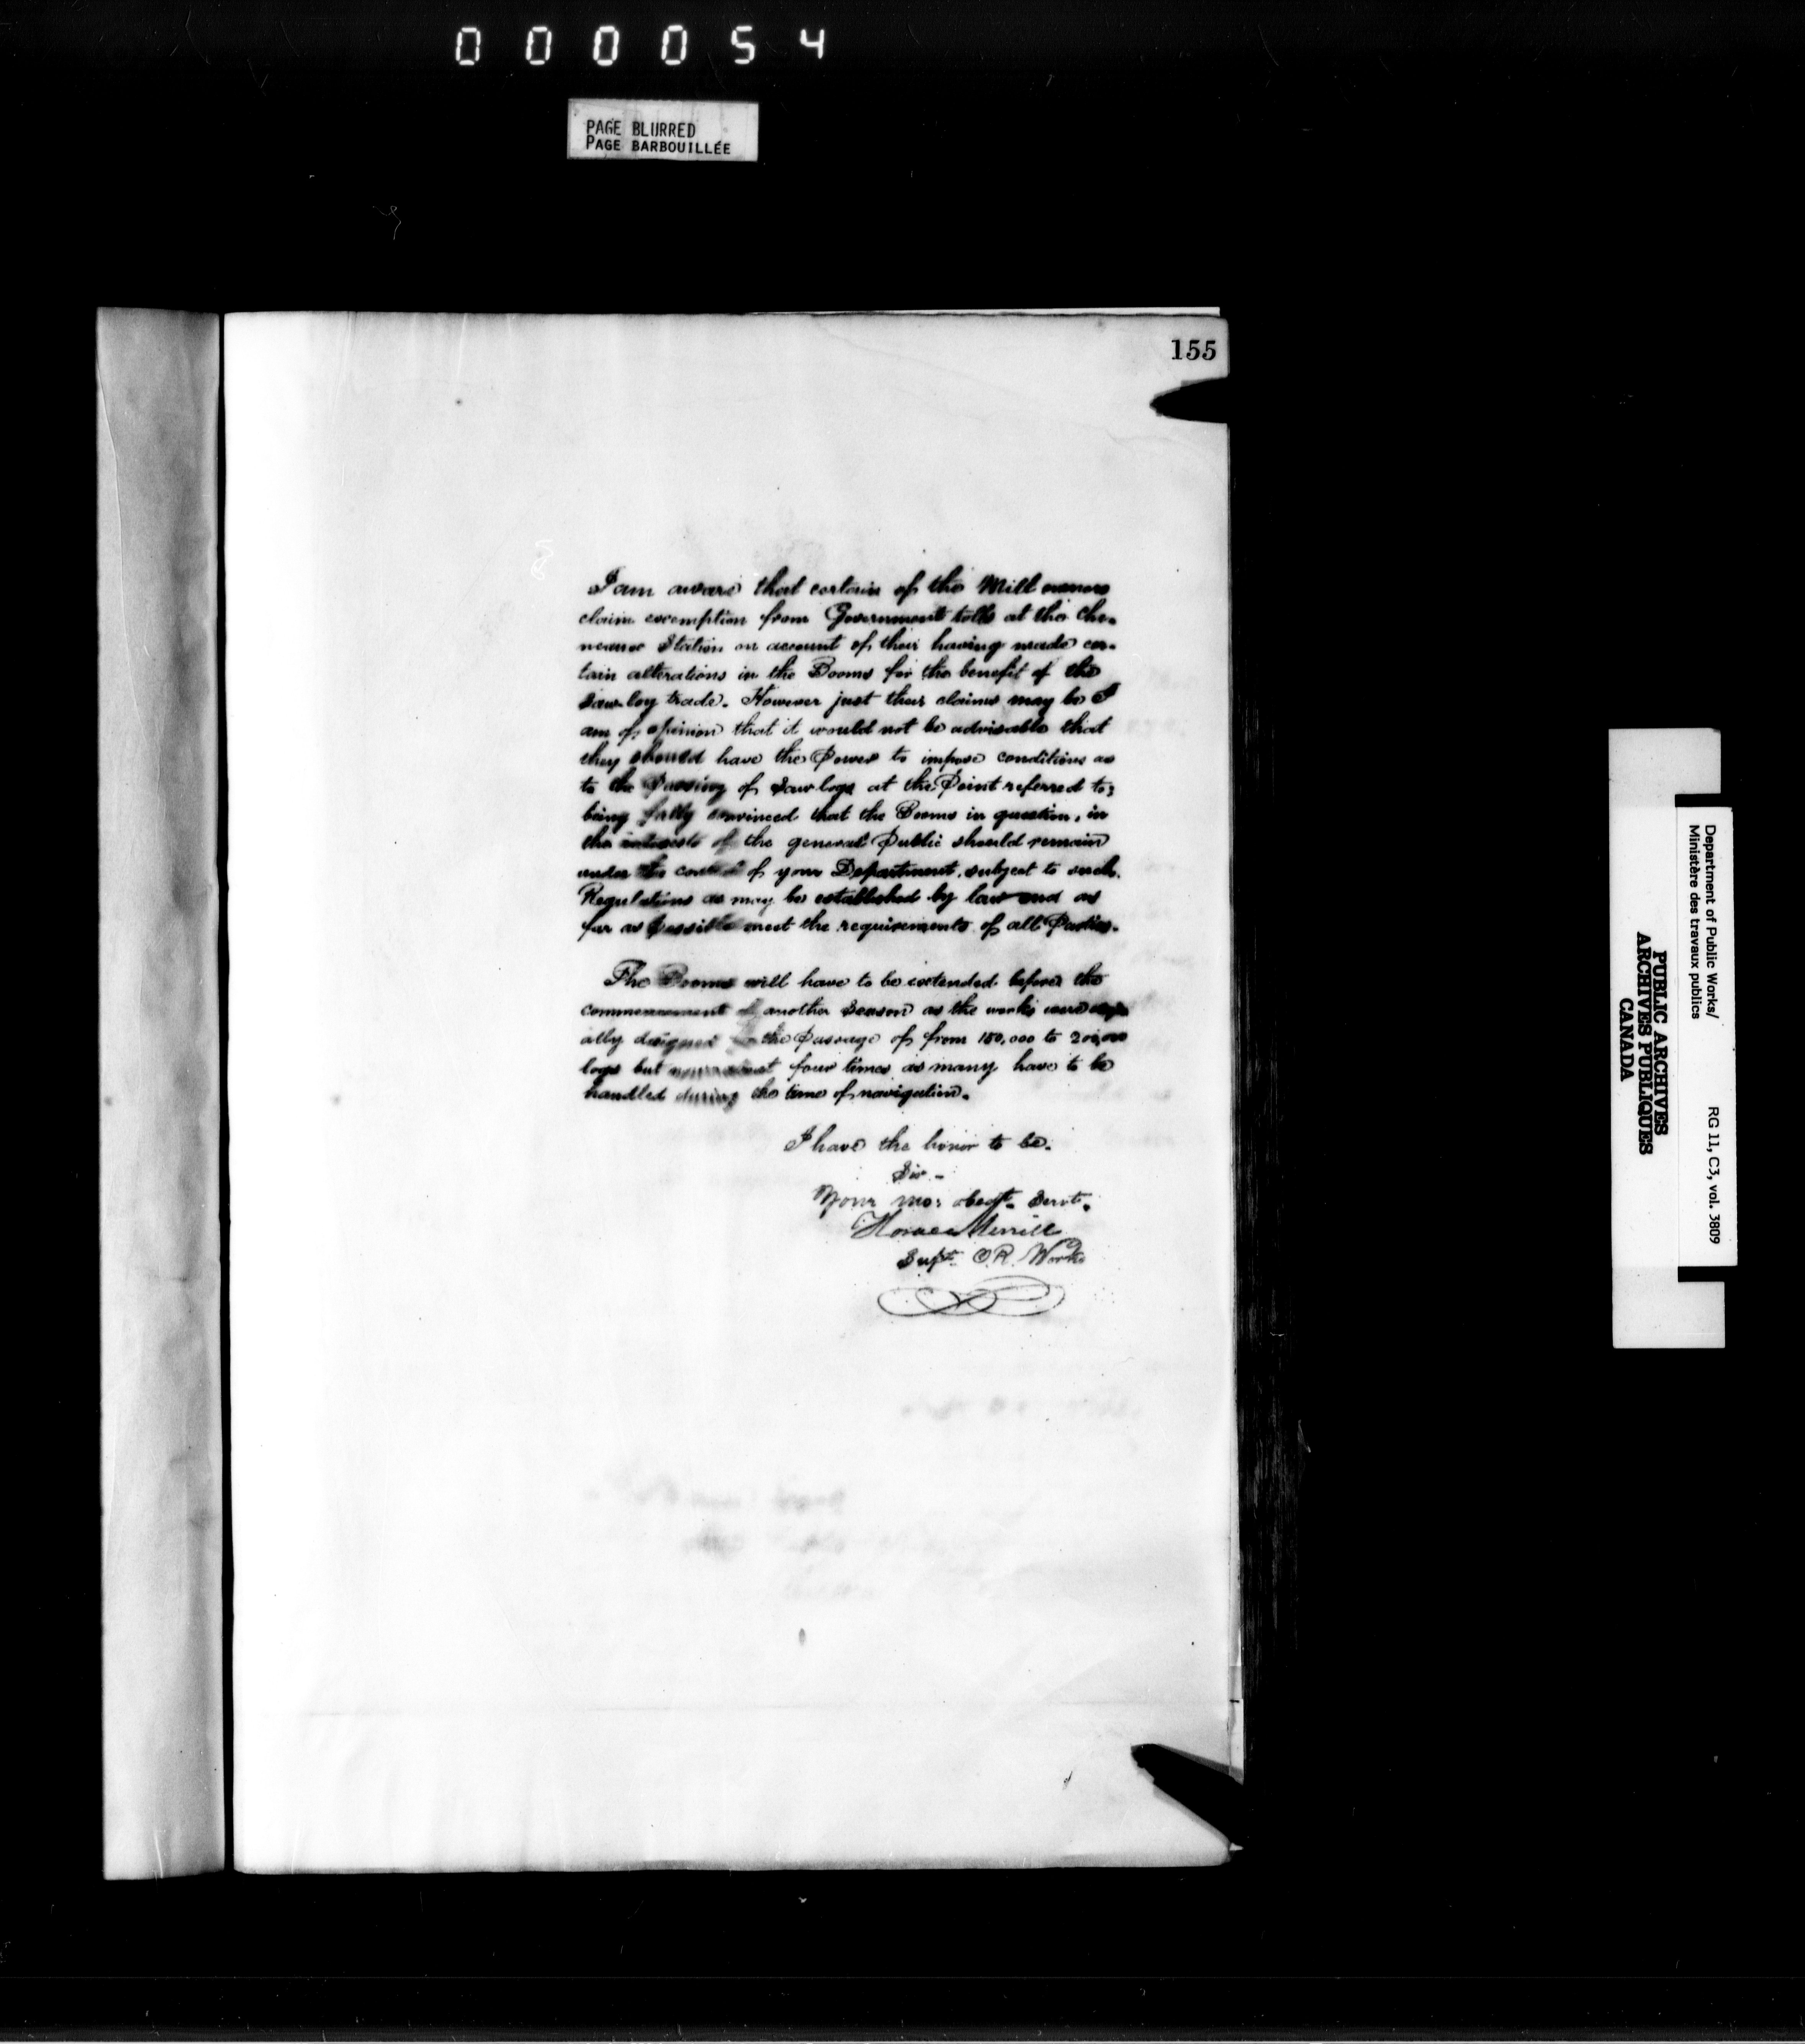 000054
PAGE BLURRED
PAGE BARBOUILLÉE
155
I am aware that certain of the Mill owners
claim exemption from Government tolls at the Che-
neaux Station on account of their having made cer-
tain alterations in the Booms for the benefit of the
Saw-log trade. However just their claims may be I
am of opinion that it would not be advisable that
they should have the Power to impose conditions as
to the Passing of Saw logs at the Point referred to;
being fully convinced that the Booms in question, in
the interests of the general Public should remain
under the control of your Department, subject to such
Regulations as may be established by law and as
far as possible meet the requirements of all Parties.
The Booms will have to be extended before the
commencement of another Season as the works were origin
ally designed for the Passage of from 150,000 to 200,000
logs but four times as many have to be
handled during the time of navigation.
I have the honor to be.
Sir -
Your mo: obedt. Servt.
Horace Merrill
Supt. O.R. Works
Department of Public Works/
Ministère des travaux publics
RG 11, C3, vol. 3809
PUBLIC ARCHIVES
ARCHIVES PUBLIQUES
CANADA